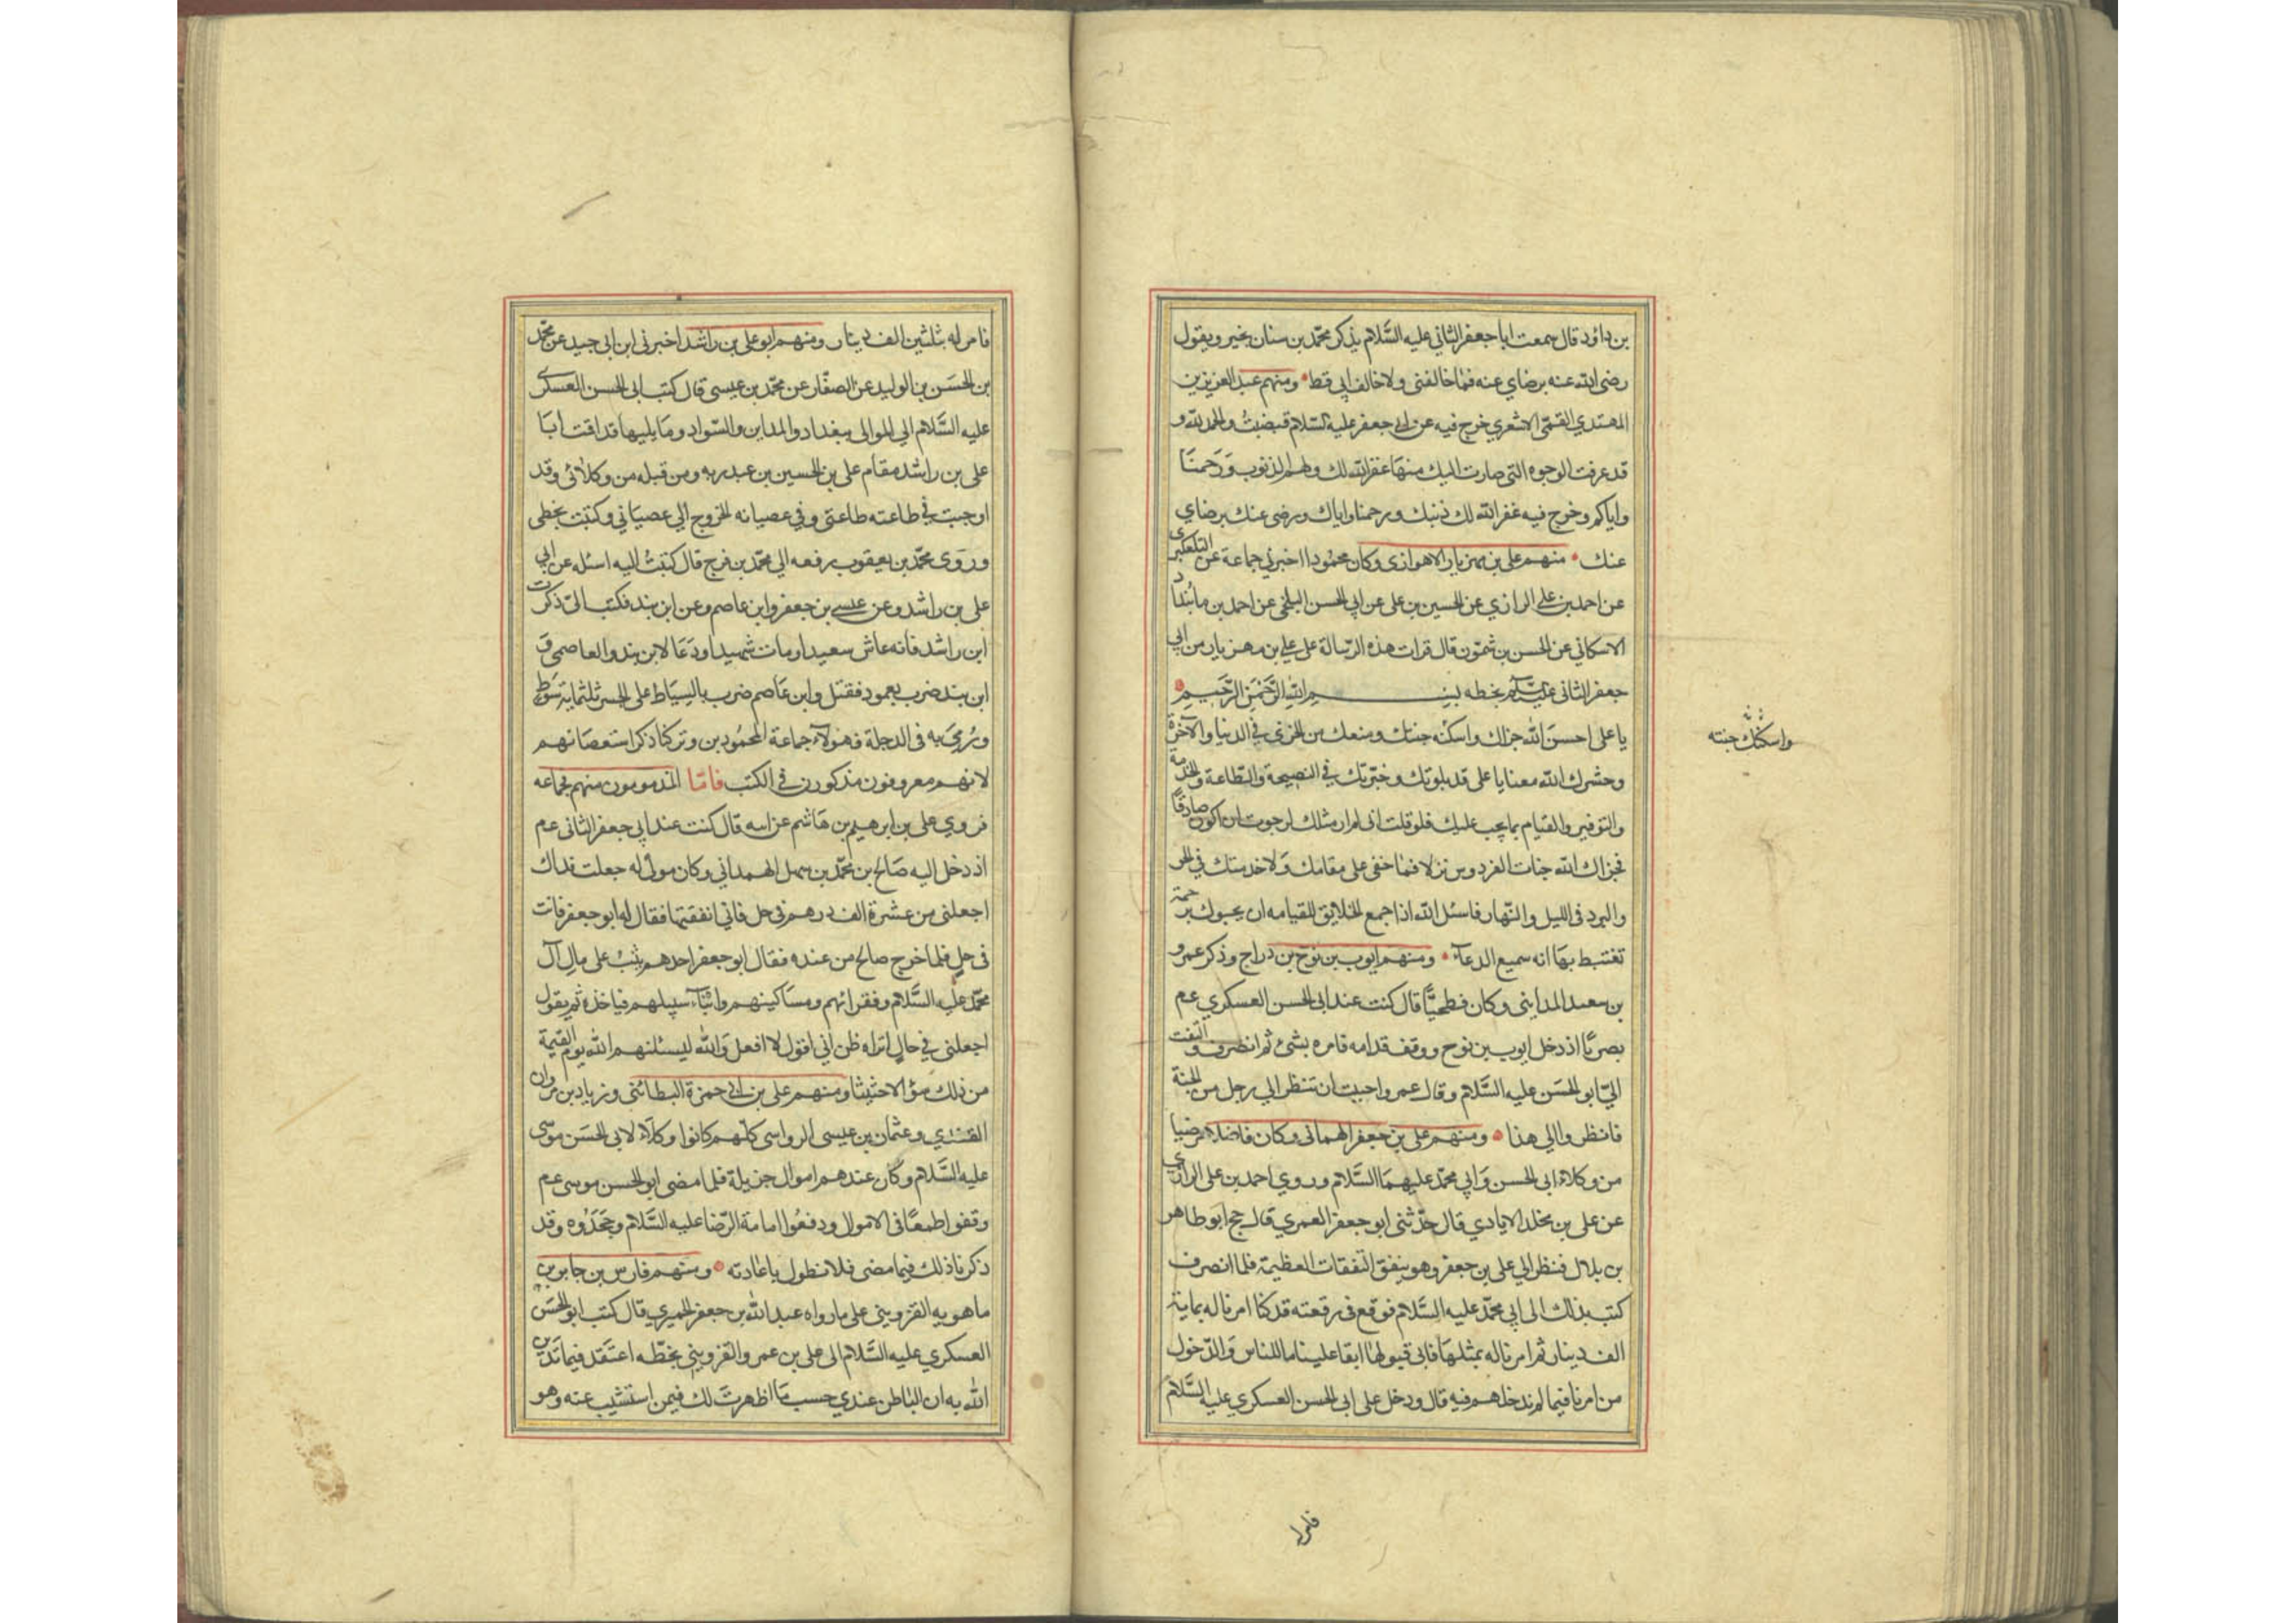 بن داؤد قال سمعت ابا جعفر الثاني عليه السَّلام يذكر محمّد بن سنان بخير ويقول
رضى الله عنه برضاي عنه فما خالفنى ولا خالف ابى قط ومنهم عبد العزيز بن
المهتدي القمّى الاشعري خرج فيه عن ابى جعفر عليه السّلام قبضتُ والحمد لله و
قد عرفت الوجوه التى صارت اليك منها غفر الله لك ولهم الذنوب وَرَحمنَا
واياكم وخرج فيه غفر الله لك ذنبك ورحمنا واياك ورضى عنك برضاي
عنك منهم على بن مهزيار الاهوازى وكان محمُودا اخبرني جماعة عن التلعكبرى
عن احمد بن على الرازي عن الحسين بن على عن ابي الحسن البلخى عن احمد بن مابنداد
الاسكافي عن الحسن بن شمّون قال قرات هذه الرّسالة على على بن مهزيار من ابي
جعفر الثانى عليه السّلام بخطه بسم الله الرَّحْمٰنِ الرَّحيم
يا على احسنَ الله جزاك واسكنه جنتك ومنعك من الخزى في الدنيا والآخرة
وحشرك الله معنا يا على قد بلوتك وخبّرتك في النصيحة والطّاعة والخدمة
والتوقير والقيام بما يجب عليك فلو قلت انى لم ار مثلك لرجوت ان اكون صادقاً
فجزاك الله جنات الفردوس نزلا فما خفى على مقامك وَلا خدمتك في الحر
والبرد فى الليل والنّهار فاسئل الله اذا جمع الخلايق للقيامه ان يحبوك برحمة
تغتبط بها انه سميع الدعآء ومنهم ايوب بن نوح بن دراج وذكر عمرو
بن سعيد المدايني وكان فطحيّاً قال كنت عند ابى الحسن العسكري عم
بصريّا اذ دخل ايوب بن نوح ووقف قدامه فامره بشئ ثم انصرف والتفت
اليّ ابو الحسَن عليه السَّلام وقال عمرو احببت ان تنظر الي رجل من الجنة
فانظر والي هذا ومنهم على بن جعفر الهمانى وكان فاضلا مرضيا
من وكلاء ابى الحسن وَابي محمّد عليهمَا السَّلام وروي احمد بن على الرازي
عن على بن مخلد الايادي قال حدّثنى ابو جعفر العمري قال حج ابو طاهر
بن بلال فنظر الي على بن جعفر وهو ينفق النّفقات العظيمة فلما انصرف
كتب بذلك الى ابي محمّد عليه السَّلام فوقع فى رقعته قد كنا امرنا له بماية
الف دينار ثم امرنا له بمثلها فابى قبولها ابقا علينا ما للناس وَالدّخول
من امرنا فيما لم ندخلهم فيه قال ودخل على ابى الحسن العسكري عليه السَّلام
واسكنك جنته
فامر
فامر له بثلثين الف دينار ومنهم ابو على بن راشد اخبرنى ابن ابى جيد عن محمّد
بن الحسَن بن الوليد عن الصفّار عن محمّد بن عيسى قال كتب ابى الحسن العسكرى
عليه السَّلام الي الموالى ببغداد والمداين والسّواد ومَا يليها قد اقت ابَا
على بن راشد مقام على بن الحسين بن عبد ربه ومن قبله من وكلائى وقد
اوجبت في طاعته طاعتى وفي عصيانه الخروج الي عصيَاني وكتبَت بخطى
وروَى محمّد بن يعقوب رفعه الي محمّد بن فرج قال كتبتُ اليه اسئله عن ابي
على بن راشد وعن عيسى بن جعفر وابن عاصم وعن ابن بند فكتب الىّ ذكرت
ابن راشد فانه عاش سعيدا ومات شهيدا ودَعَا لابن بند والعاصمى وَ
ابن بند ضرب بعمود فقتل وابن عَاصم ضرب بالسيَاط على الجسر ثلثماية سَوط
ورُمىَ به فى الدجلة فهولآء جماعة المحمُودين وتركنا ذكر استعصَائهم
لانهم معروفون مذكورون في الكتب فامّا المذمومون منهم فجماعه
فروي على بن ابرهيم بن هَاشم عن ابيه قال كنت عند ابي جعفر الثانى عم
اذ دخل اليه صَالح بن محمّد بن سهل الهمداني وكان مولى له جعلت فداك
اجعلنى من عشرة الف درهم فى حل فاني انفقتها فقال له ابو جعفر فانت
فى حلٍ فلما خرج صالح من عنده فقال ابو جعفر احدهم يثب على مال آل
محمّد عليه السَّلام وفقرائهم ومسَاكينهم وابنآء سبيلهم فياخذه ثم يقول
اجعلنى في حالٍ اتراه ظن اني اقول لا افعل وَالله ليسئلنهم الله يوم القيمة
من ذلك سؤالا حثيثا ومنهم على بن ابى حمزة البطائنى وزياد بن مروان
القندي وعثمان بن عيسى الرواسى كلهم كانوا وكلآء لابى الحسَن موسى
عليه السَّلام وكان عندهم اموال جزيلة فلما مضى ابو الحسن موسى عم
وقفوا طمعًا فى الاموال ودفعُوا امامة الرّضا عليه السَّلام وجَحَدُوه وقد
ذكرنا ذلك فيما مضى فلا نطول باعادته ومنهم فارس بن حاتم بن
ماهويه القزوينى على ما رواه عبد الله بن جعفر الحميري قال كتب ابو الحسَن
العسكري عليه السَّلام الى على بن عمرو القزوينى بخطّه اعتقد فيما تدين
الله به ان الباطن عندي حسب مَا اظهرتَ لك فيمن استثيب عنه وهو